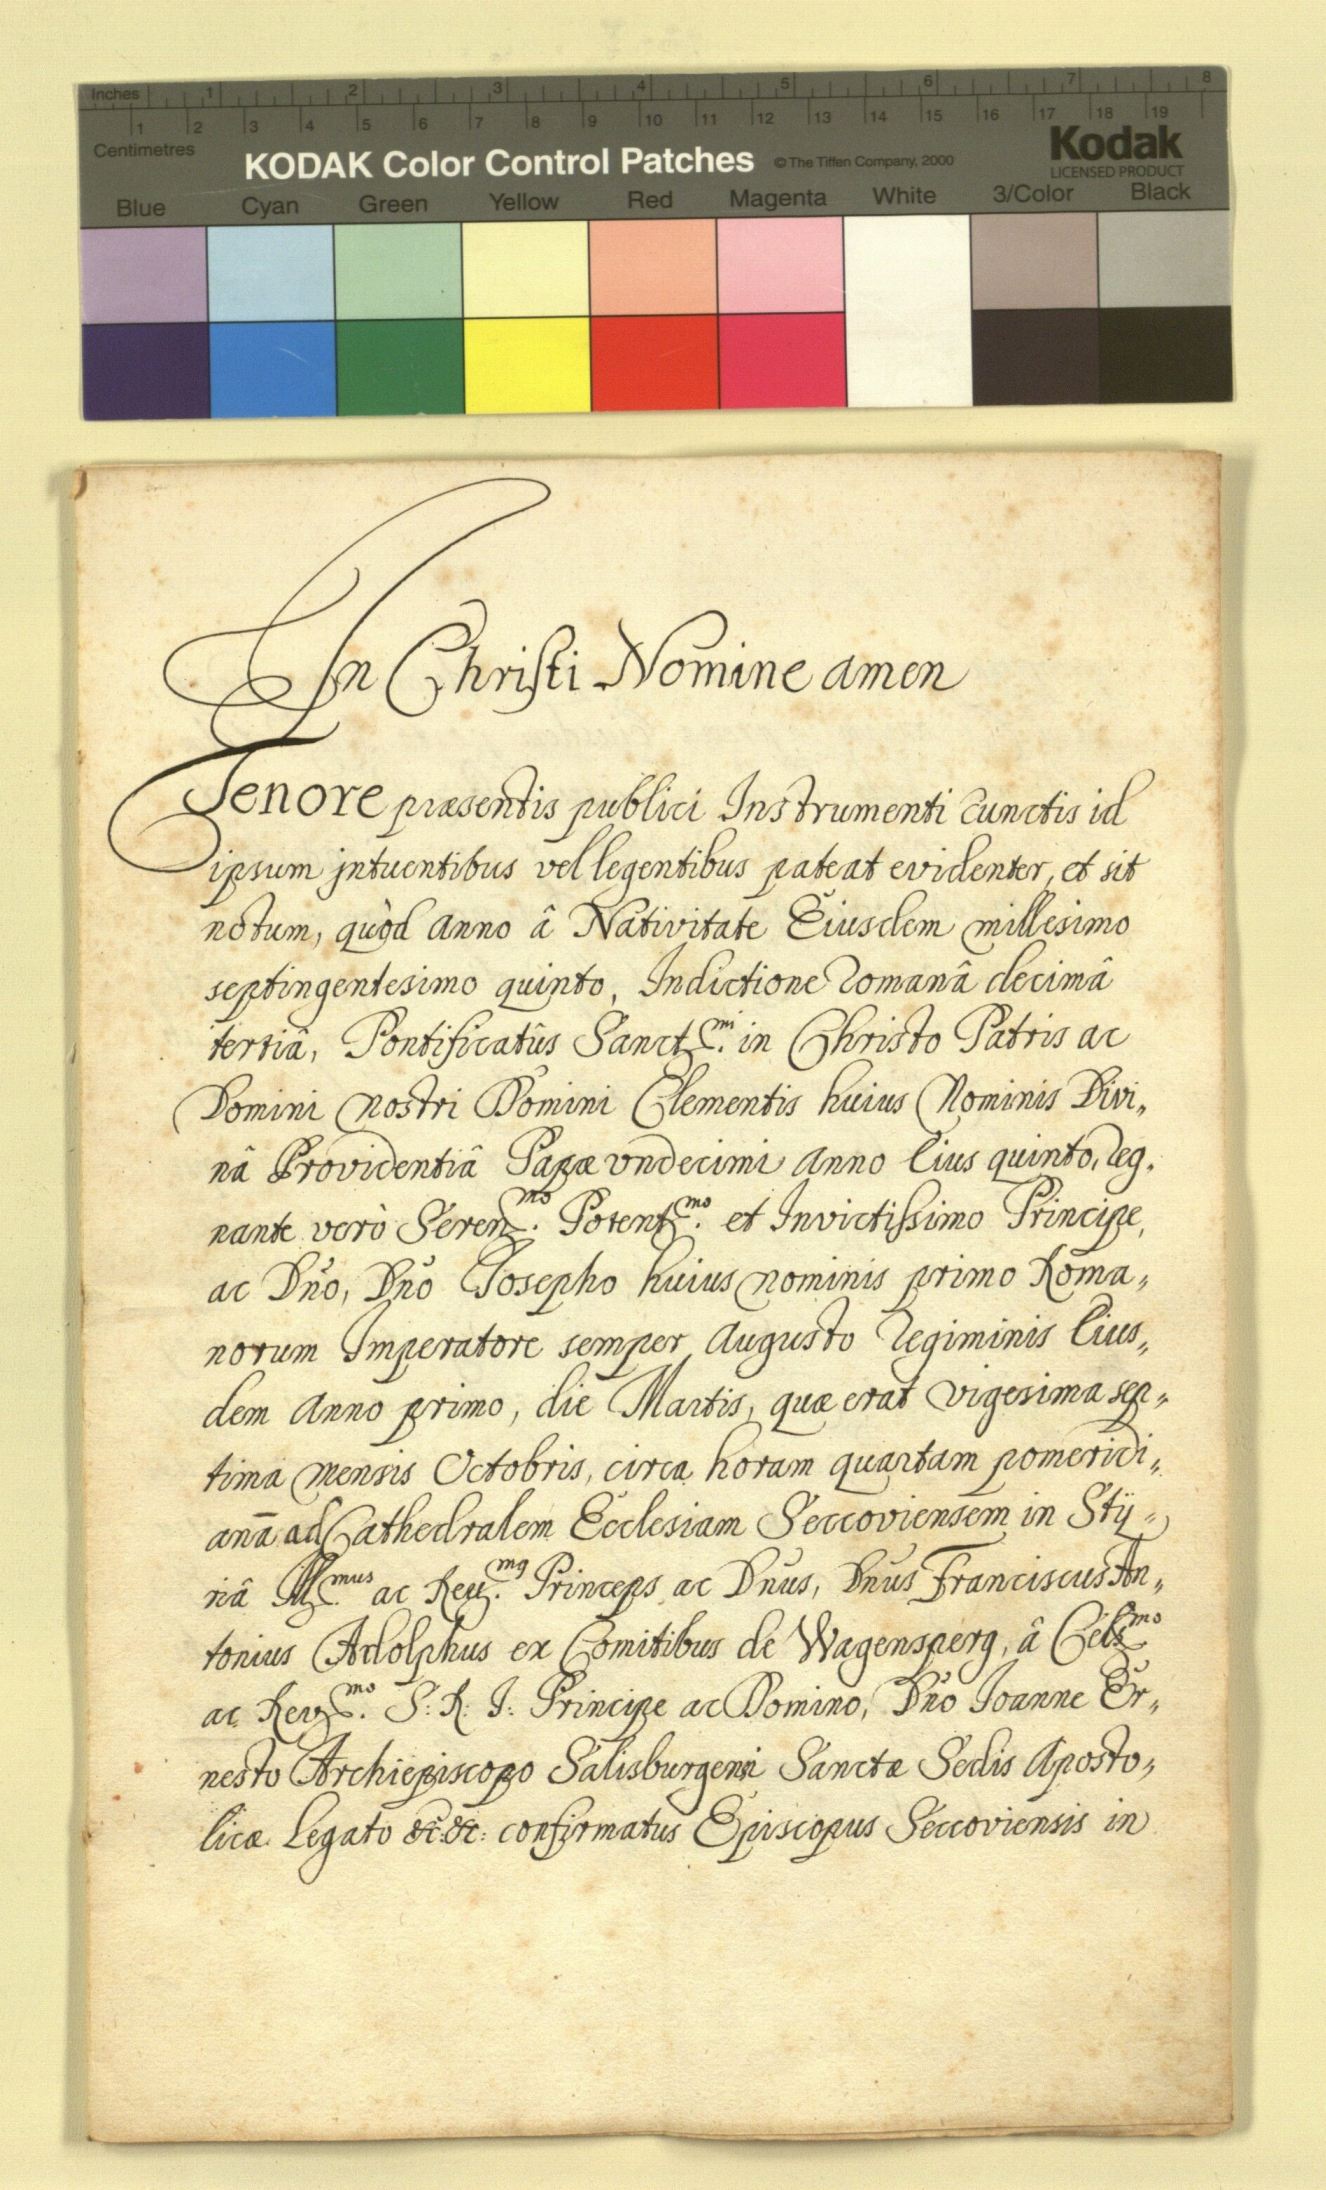 Inches 1 2 3 4 5 6 7 8
1 2 3 4 5 6 7 8 9 10 11 12 13 14 15 16 17 18 19
Centimetres
KODAK Color Control Patches © The Tiffen Company, 2000 Kodak
LICENSED PRODUCT
Blue Cyan Green Yellow Red Magenta White 3/Color Black
In Christi Nomine amen
Tenore præsentis publici Instrumenti cunctis id
ipsum jntuentibus vel legentibus pateat evidenter, et sit
notum, quòd anno â Nativitate Eiusdem millesimo
septingentesimo quinto, Indictione romanâ decimâ
tertiâ, Pontificatûs Sanct.mi in Christo Patris ac
Domini nostri Domini Clementis huius Nominis Divi„
nâ Providentiâ Papæ vndecimi anno Eius quinto, reg„
nante verò Seren.mo Potent.mo et Invictissimo Principe,
ac Dño, Dño Josepho huius nominis primo Roma„
norum Imperatore semper Augusto regiminis Eius„
dem anno primo, die Martis, quæ erat vigesima sep„
tima mensis Octobris, circa horam quartam pomeridi„
anā ad Cathedralem Ecclesiam Seccoviensem in Stÿ„
riâ Ill.mus ac Rev.mg Princeps ac Dñus, Dñus Franciscus An„
tonius Adolphus ex Comitibus de Wagensperg, â Cels.mo
ac Rev.mo S: R: I: Principe ac Domino, Dño Joanne Er„
nesto Archiepiscopo Salisburgensi Sanctæ Sedis Aposto„
licæ Legato &c: &c: confirmatus Episcopus Seccoviensis in